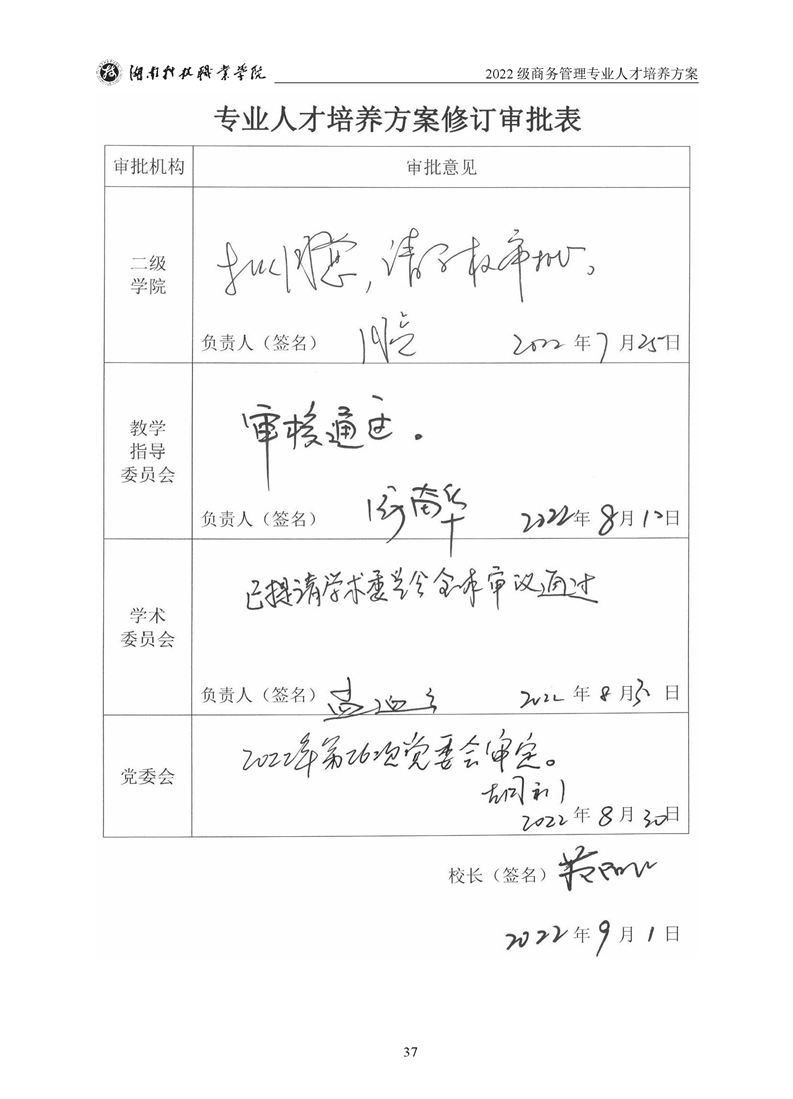 湖南科技职业学院
2022 级商务管理专业人才培养方案
专业人才培养方案修订审批表
审批机构
审批意见
二级
学院
拟同意，请学校审批。
负责人（签名）
2022 年 7 月 25 日
教学
指导
委员会
审核通过。
负责人（签名）
2022 年 8 月 12 日
学术
委员会
已提请学术委员会全体审议通过
负责人（签名）
2022 年 8 月 日
党委会
2022年第26次党委会审定。
2022 年 8 月 30 日
校长（签名）
2022 年 9 月 1 日
37